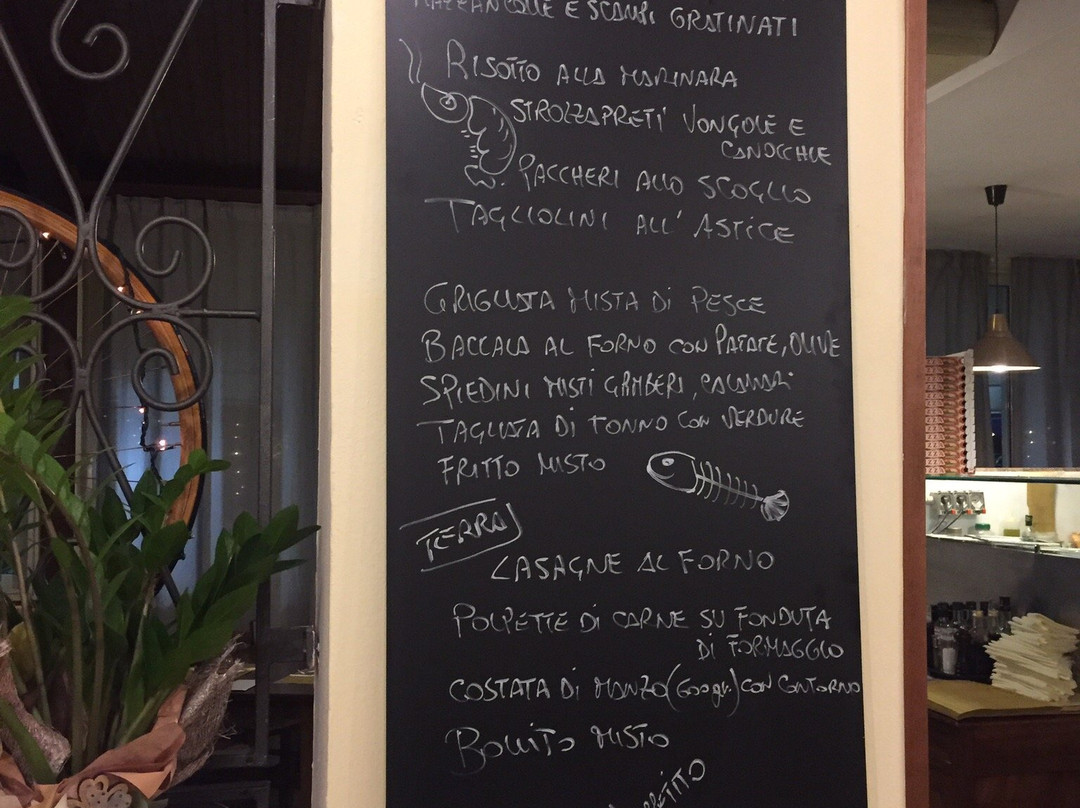 MAZZANCOLLE E SCAMPI GRATINATI
RISOTTO ALLA MARINARA
STROZZAPRETI VONGOLE E
CANOCCHIE
PACCHERI ALLO SCOGLIO
TAGLIOLINI ALL' ASTICE
GRIGLIATA MISTA DI PESCE
BACCALA AL FORNO CON PATATE, OLIVE
SPIEDINI MISTI GAMBERI, CALAMARI
TAGLIATA DI TONNO CON VERDURE
FRITTO MISTO
TERRA
LASAGNE AL FORNO
POLPETTE DI CARNE SU FONDUTA
DI FORMAGGIO
COSTATA DI MANZO (600gr.) CON CONTORNO
BOLLITO MISTO